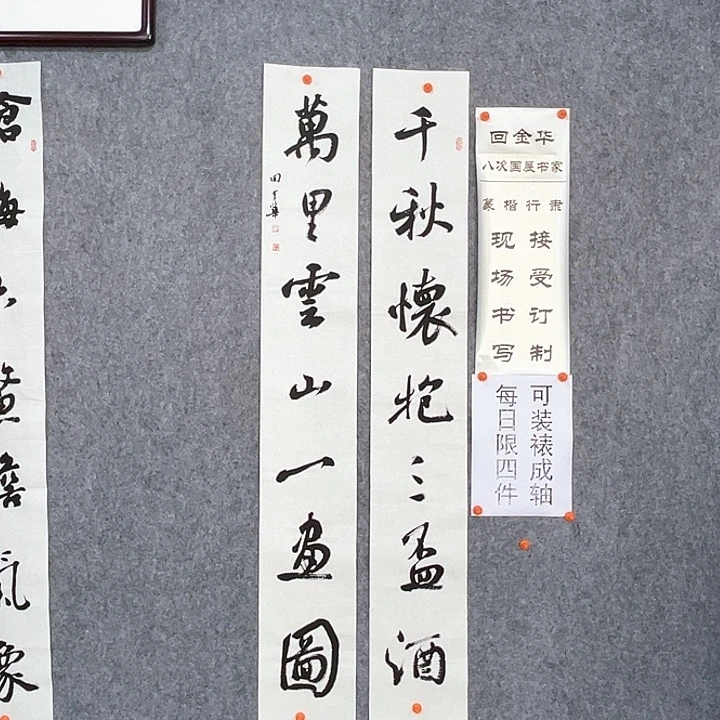 回金华
八次国展书家
篆楷行隶
接受订制
现场书写
可装裱成轴
每日限四件
千秋懷抱三盃酒
萬里雲山一畫圖
氣象